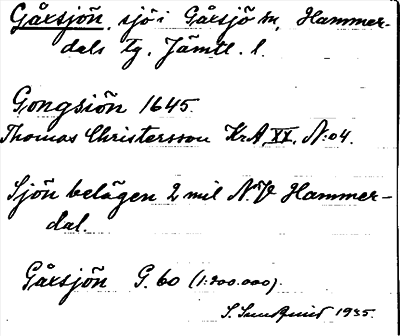 Gåxsjön, sjö i Gåxsjö sn, Hammer-
dals tg. Jämtl. l.
Gongsiön 1645
Thomas Christersson KrA XX, N:o 4.
Sjön belägen 2 mil N.V Hammer-
dal.
Gåxsjön G. 60 (1:200.000).
S. Sundquist 1935.